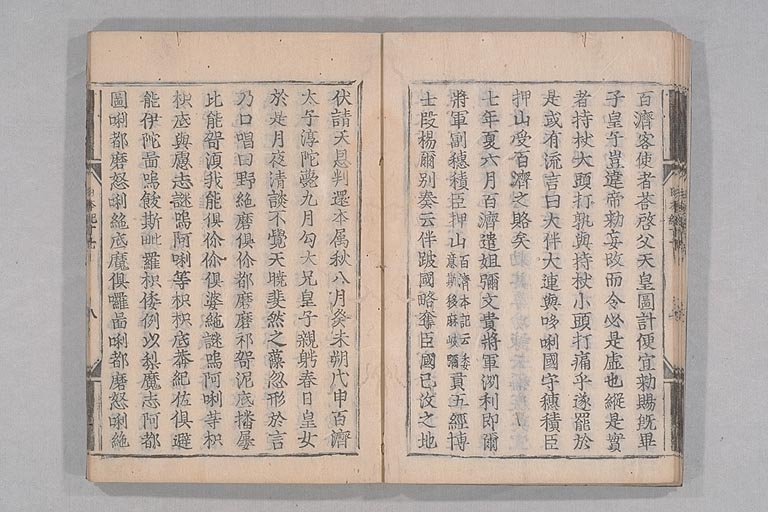 百濟客使者荅啓父天皇圖計便宜勅賜旣畢
子皇子豈違帝勅妄改而令必是虛也縱是實
者持杖大頭打孰與持杖小頭打痛乎遂罷於
是或有流言曰大伴大連與哆唎國守穗積臣
押山受百濟之賂矣
七年夏六月百濟遣姐彌文貴將軍洲利即爾
將軍副穗積臣押山百濟本記云委意斯移麻岐彌貢五經博
士段楊爾別奏云伴跛國略奪臣國己汶之地
伏請天恩判還本属秋八月癸未朔戊申百濟
太子淳陀薨九月勾大兄皇子親躬春日皇女
於是月夜清談不覺天曉斐然之藻忽形於言
乃口唱曰野絁磨俱伱都磨磨祁哿泥底播屢
比能哿湏我能俱伱伱俱婆絁謎鳴阿唎等枳
枳底與慮志謎鳴阿唎等枳枳底莽紀佐俱避
能伊陀圖鳴飫斯毗羅枳倭例以梨魔志阿都
圖唎都磨怒唎絁底魔俱囉圖唎都磨怒唎絁
八